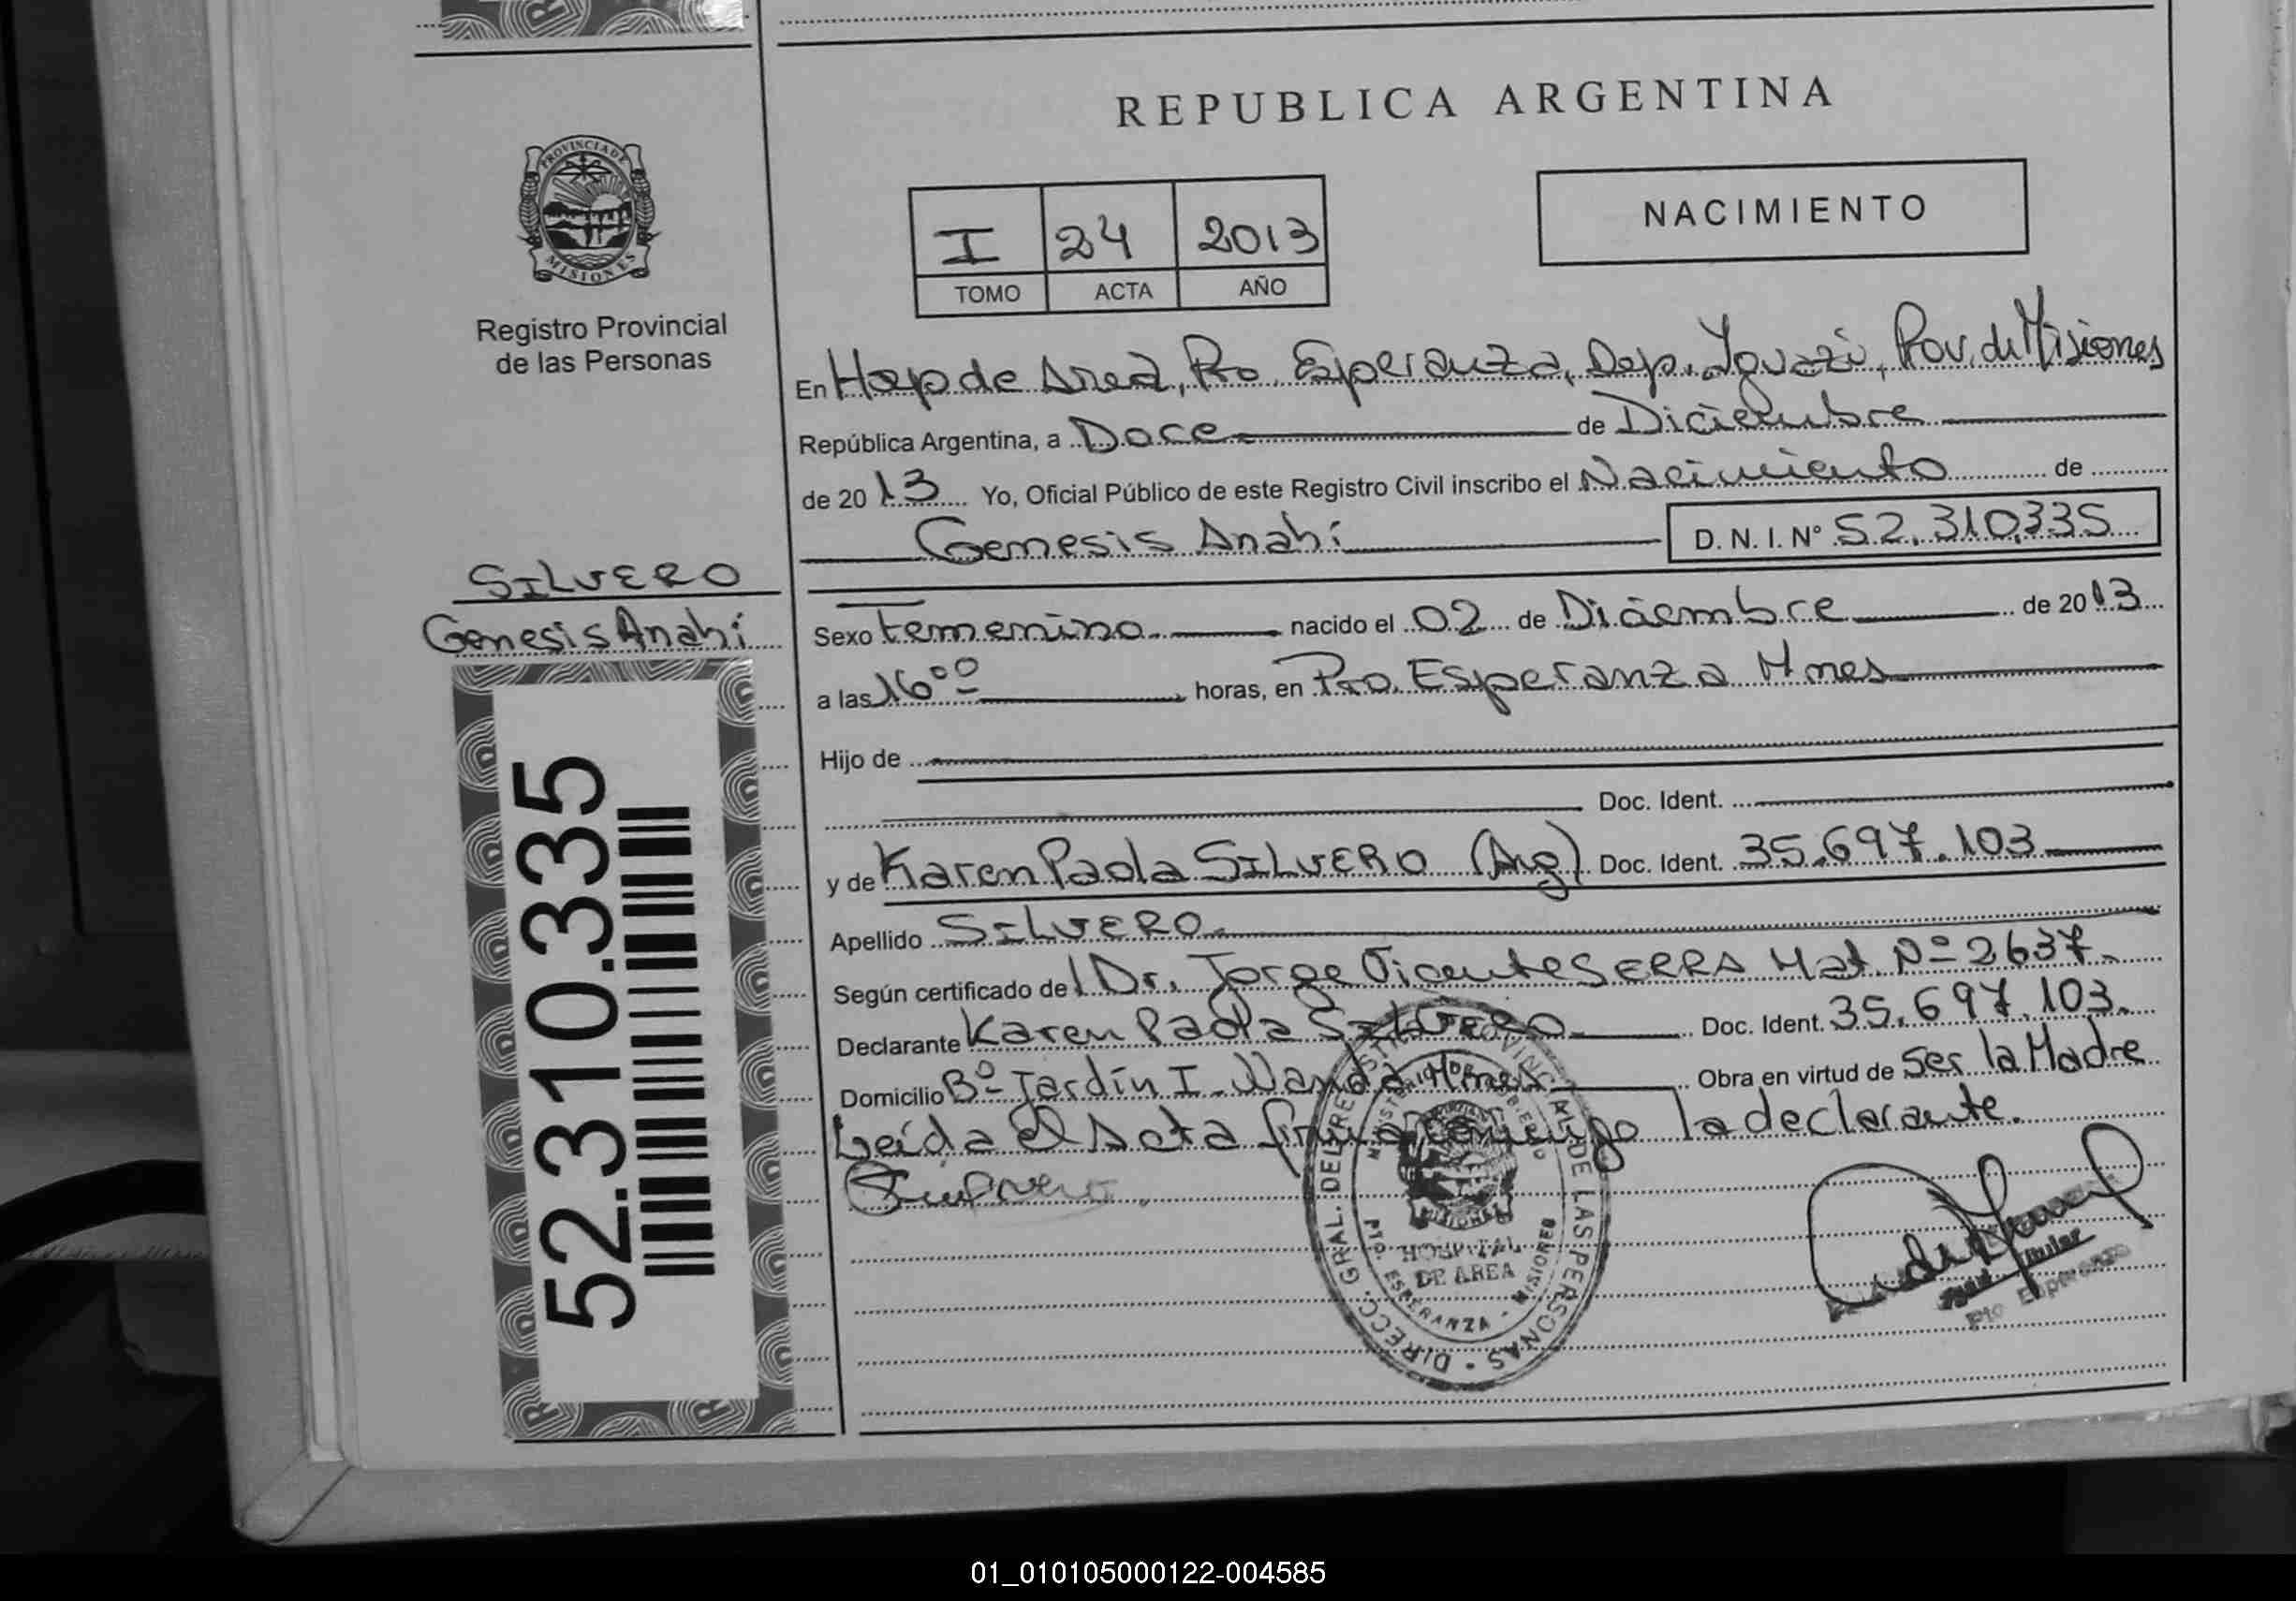 REPUBLICA ARGENTINA
PROVINCIA DE
MISIONES
Registro Provincial
de las Personas
I 24 2013
TOMO ACTA AÑO
NACIMIENTO
En Hosp de Area, Pto Esperanza, Dep. Iguazú, Prov. de Misiones
República Argentina, a Doce de Diciembre
de 2013 Yo, Oficial Público de este Registro Civil inscribo el Nacimiento de
Genesis Anahí D. N. I. N° 52.310.335
SILVERO
Genesis Anahí
Sexo Femenino nacido el 02 de Diciembre de 2013
a las 16°° horas, en Pto. Esperanza Mnes
Hijo de
Doc. Ident.
y de Karen Paola SILVERO (Arg) Doc. Ident. 35.697.103
Apellido SILVERO
Según certificado de l Dr. Jorge Vicente SERRA Mat. Nº 2637.
Declarante Karen Paola Silvero Doc. Ident. 35.697.103.
Domicilio Bº Jardín I - Wanda Mnes Obra en virtud de Ser la Madre
Leída el Acta firma conmigo la declarante.
52.310.335
DIRECC. GRAL. DEL REGISTRO PROVINCIAL DE LAS PERSONAS
MINISTERIO DE GOBIERNO
MISIONES
HOSPITAL
DE AREA
PTO. ESPERANZA - MISIONES
Titular
Pto Esperanza
01_010105000122-004585